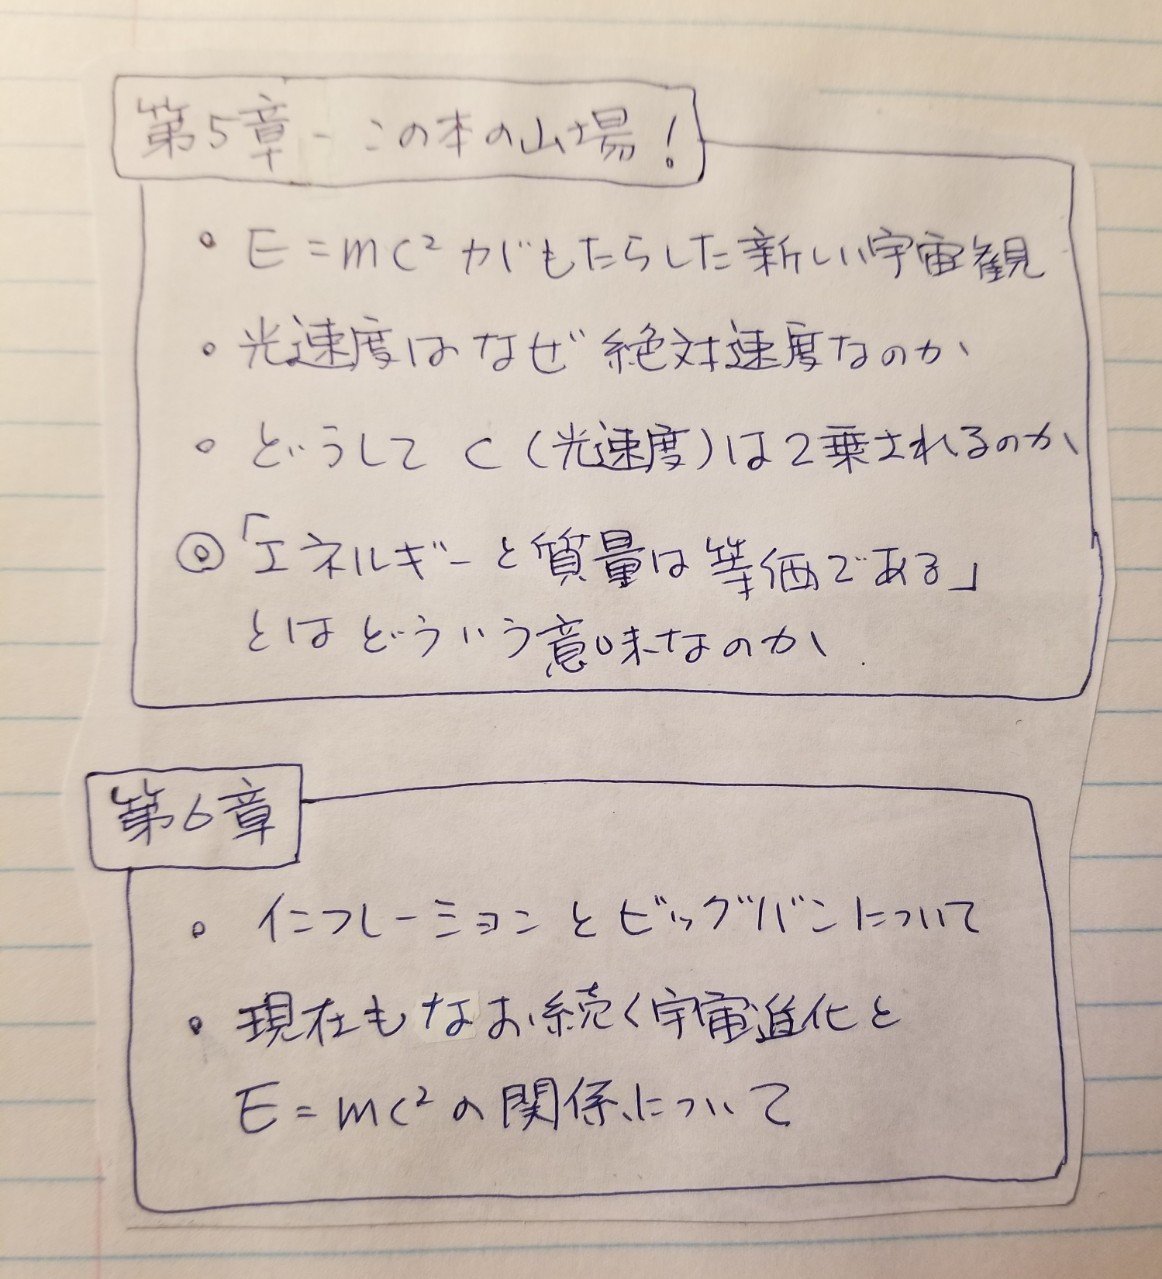 第5章-この本の山場!
・E=mc²がもたらした新しい宇宙観
・光速度はなぜ絶対速度なのか
・どうしてC(光速度)は2乗されるのか
◎「エネルギーと質量は等価である」
とはどういう意味なのか
第6章
・インフレーションとビッグバンについて
・現在もなお続く宇宙進化と
E=mc²の関係について